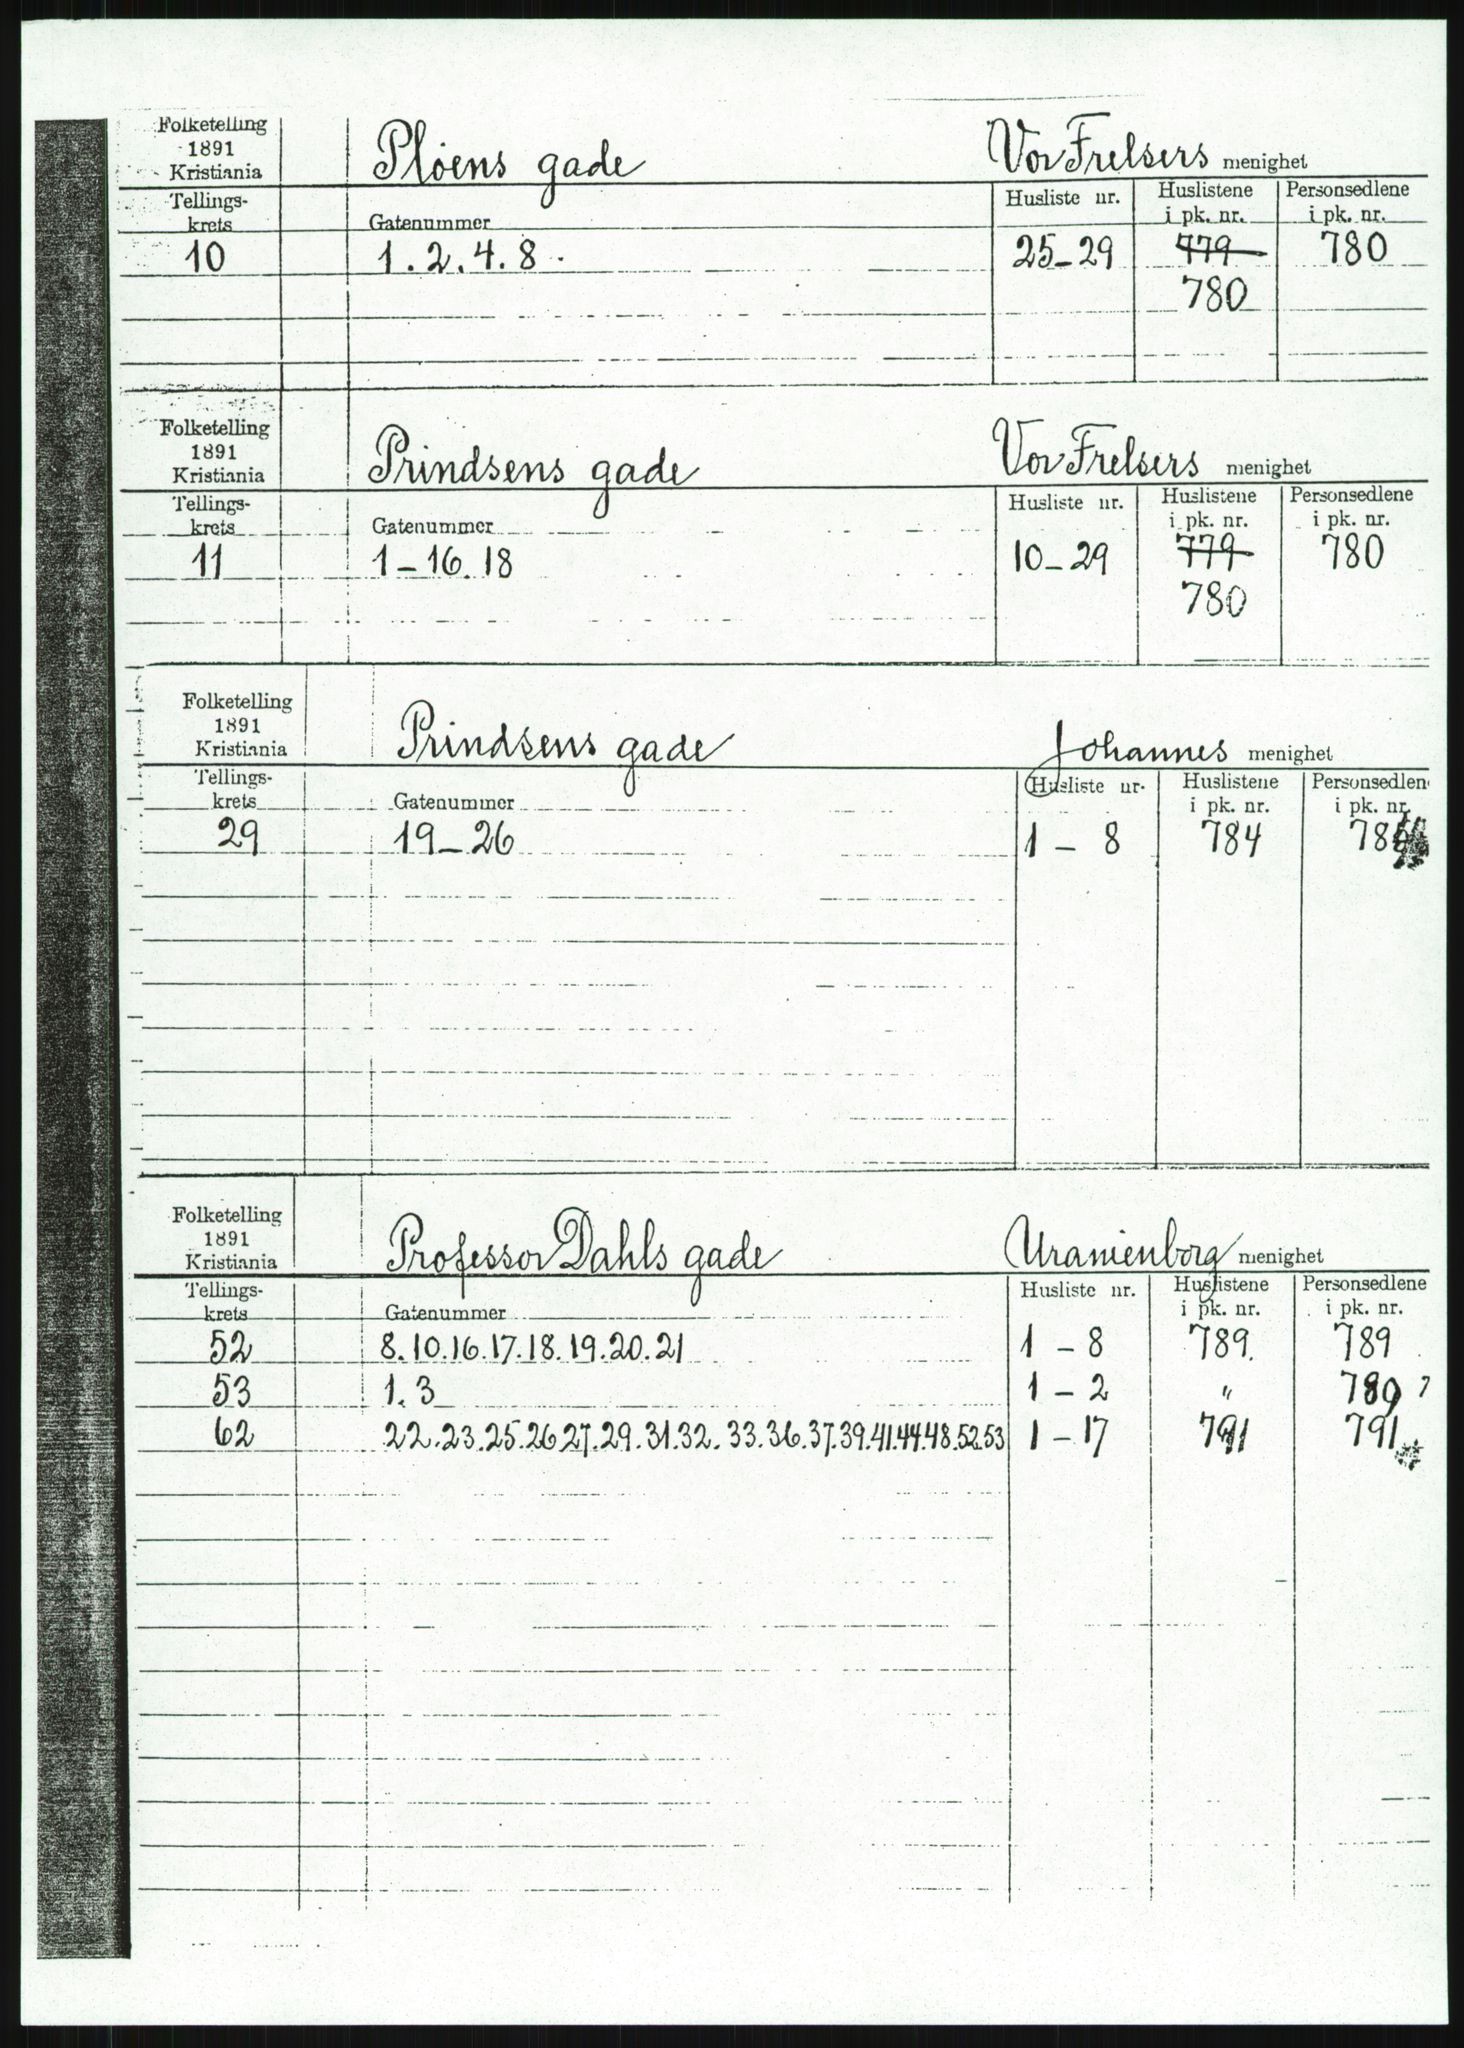 Folketelling
1891
Kristiania
Pløens gade
Vor Frelsers menighet
Tellings-
krets
Gatenummer
Husliste nr.
Huslistene
i pk. nr.
Personsedlene
i pk. nr.
10 1.2.4.8. 25-29 779 780
780
Folketelling
1891
Kristiania
Prindsens gade
Vor Frelsers menighet
Tellings-
krets
Gatenummer
Husliste nr.
Huslistene
i pk. nr.
Personsedlene
i pk. nr.
11 1-16.18 10-29 779 780
780
Folketelling
1891
Kristiania
Prindsens gade
Johannes menighet
Tellings-
krets
Gatenummer
Husliste nr.
Huslistene
i pk. nr.
Personsedlen
i pk. nr.
29 19-26 1-8 784
Folketelling
1891
Kristiania
Professor Dahls gade
Uranienborg menighet
Tellings-
krets
Gatenummer
Husliste nr.
Huslistene
i pk. nr.
Personsedlene
i pk. nr.
52 8.10.16.17.18.19.20.21 1-8 789. 789
53 1.3 1-2 "
62 22.23.25.26.27.29.31.32.33.36.37.39.41.44.48.52.53 1-17 791 791